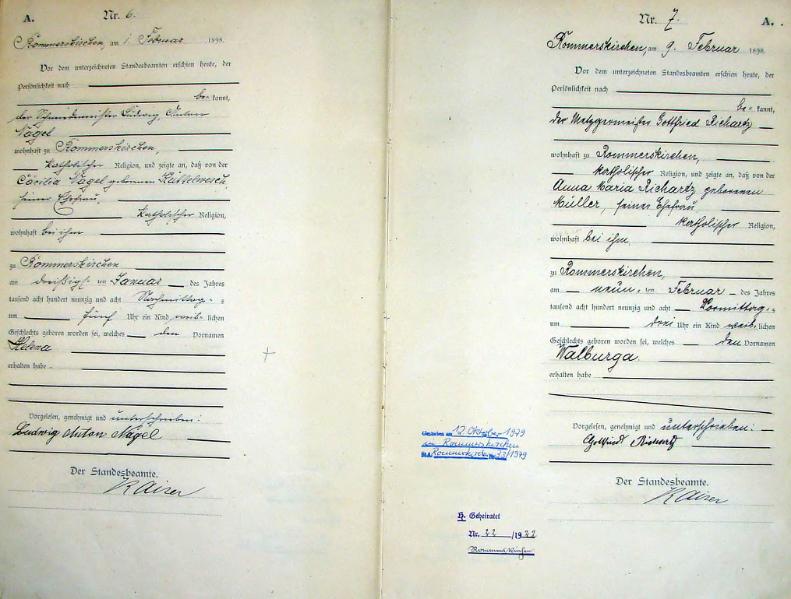 A.
Nr. 6.
Rommerskirchen, am 1. Februar 1898.
Vor dem unterzeichneten Standesbeamten erschien heute, der
Persönlichkeit nach
be kannt,
der Schmiedemeister Ludwig, Anton
Nagel
wohnhaft zu Rommerskirchen,
katholischer Religion, und zeigte an, daß von der
Cäcilia Nagel geborenen
seiner Ehefrau,
katholischer Religion,
wohnhaft bei ihm
zu Rommerskirchen
am dreißig ten Januar des Jahres
tausend acht hundert neunzig und acht Nachmittags
um fünf Uhr ein Kind weib lichen
Geschlechts geboren worden sei, welches den Vornamen
Helena
erhalten habe
Vorgelesen, genehmigt und unterschrieben:
Ludwig Anton Nagel
Der Standesbeamte.
Kaiser
Nr. 7.
A.
Rommerskirchen, am 9. Februar 1898.
Vor dem unterzeichneten Standesbeamten erschien heute, der
Persönlichkeit nach
be kannt,
der Metzgermeister Gottfried Richartz
wohnhaft zu Rommerskirchen,
katholischer Religion, und zeigte an, daß von der
Anna Maria Richartz geborenen
Müller, seiner Ehefrau
katholischer Religion,
wohnhaft bei ihm,
zu Rommerskirchen,
am neun ten Februar des Jahres
tausend acht hundert neunzig und acht Vormittags
um drei Uhr ein Kind weib lichen
Geschlechts geboren worden sei, welches den Vornamen
Walburga
erhalten habe
Vorgelesen, genehmigt und unterschrieben:
Gottfried Richartz
Der Standesbeamte.
Kaiser
Gestorben am 12. Oktober 1979
in Rommerskirchen
St.A. Rommerskirchen /1979
H. Geheiratet
Nr. 22 /19 22
Rommerskirchen